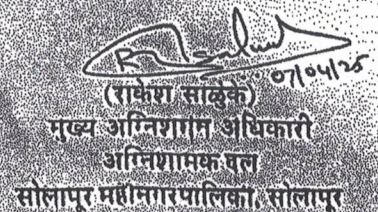 07/04/25
(राकेश साळुंके)
मुख्य अग्निशमन अधिकारी
अग्निशामक दल
सोलापूर महानगरपालिका, सोलापूर